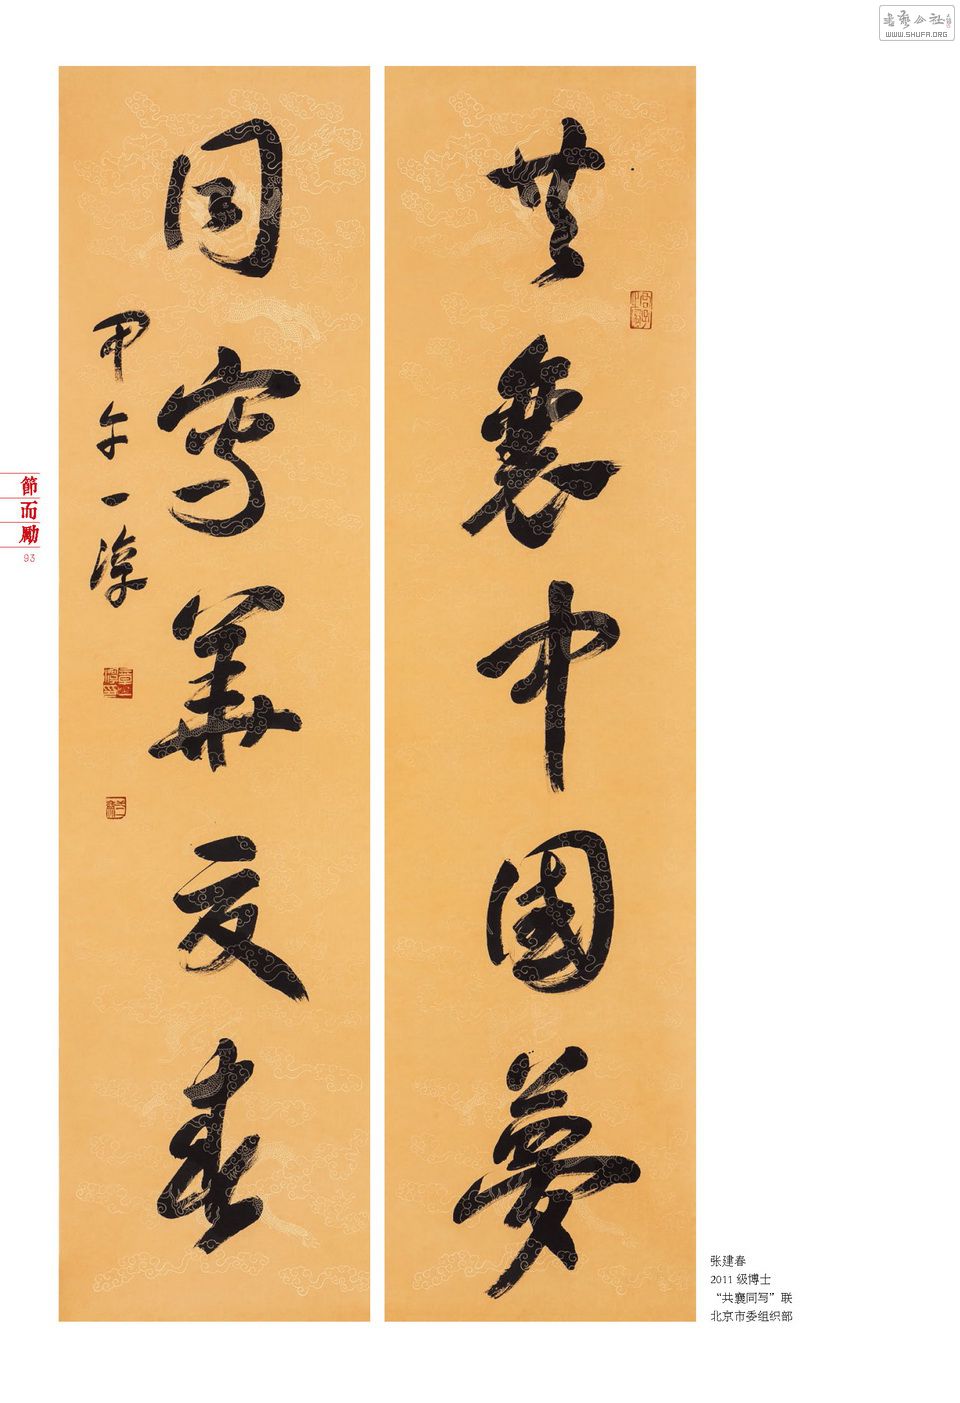 書藝公社
WWW.SHUFA.ORG
共襄中國夢
同寫華夏春
甲午一淳
節而勵
93
张建春
2011 级博士
“共襄同写”联
北京市委组织部